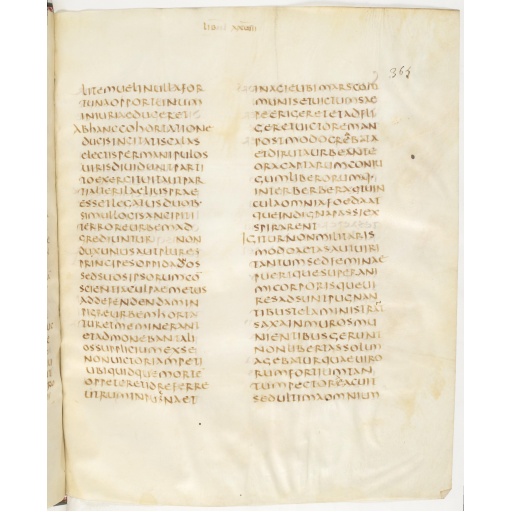 LIBER XXVIII
365
LITEMUELINILLAFOR
TUNAOPPORTUNUM
INIURIAEDUCERET
ABHANCCOHORTATIONE
DUCISINCITATISCALAS
ELECTISPERMANIPULOS
UIRISDIUIDUNTPARTI
TOEXERCITUITAUTPAR
TIALTERILAELIUSPRAE
ESSETLEGATUSDUOBUS
SIMULLOCISANCIPITI
TERROREURBEMAD
GREDIUNTUR NON
DUXUNUSAUTPLURES
PRINCIPESOPPIDANOS
SEDSUOSIPSORUMCO
SCIENTIACULPAEMETUS
ADDEFENDENDAMIN
PIGREURBEMHORTA
TURETMEMINERANT
ETADMONEBANTALI
OSSUPPLICIUMEXSE
NONUICTORIAMPETI
UBIQUIDQUEMORTE
OPPETERETIDREFERRE
UTRUMINPUGNAET
INACIEUBIMARSCOM
MUNISETUICTUMSAE
PEERIGERETETADFLI
GERETUICTOREMAN
POSTMODOCREMATA
ETDIRUTAURBEANTE
ORACAPTARUMCONIU
GUMLIBERORUMQ
INTERBERBERAETUIN
CULAOMNIAFOEDAAT
QUEINDIGNAPASSIEX
SPIRARENT
IGITURNONMILITARIS
MODOAETASAUTUIRI
TANTUMSEDFEMINAE
PUERIQUESUPERANI
MICORPORISQUEUI
RESADSUNTPUGNAN
TIBUSTELAMINISTRANT
SAXAINMUROSMU
NIENTIBUSGERUNT
NONLIBERTASSOLUM
AGEBATURQUAEUIRO
RUMFORTIUMTAN
TUMPECTORAACUIT
SEDULTIMAOMNIUM